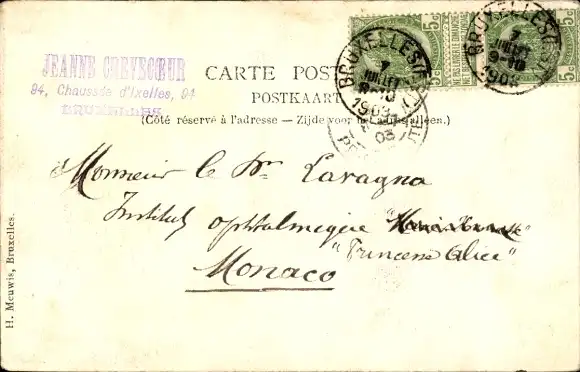 JEANNE CREVECŒUR
94, Chaussée d'Ixelles, 94
BRUXELLES
CARTE POST
POSTKAART
(Côté réservé à l'adresse — Zijde voor het adres alleen.)
5c
5c
BRUXELLES
7
JUILLET
1903
BRUXELLES
7
JUILLET
9-10
03
Monsieur le Dr Lavagna
Institut ophtalmique
"Princesse Alice"
Monaco
H. Meuwis, Bruxelles.